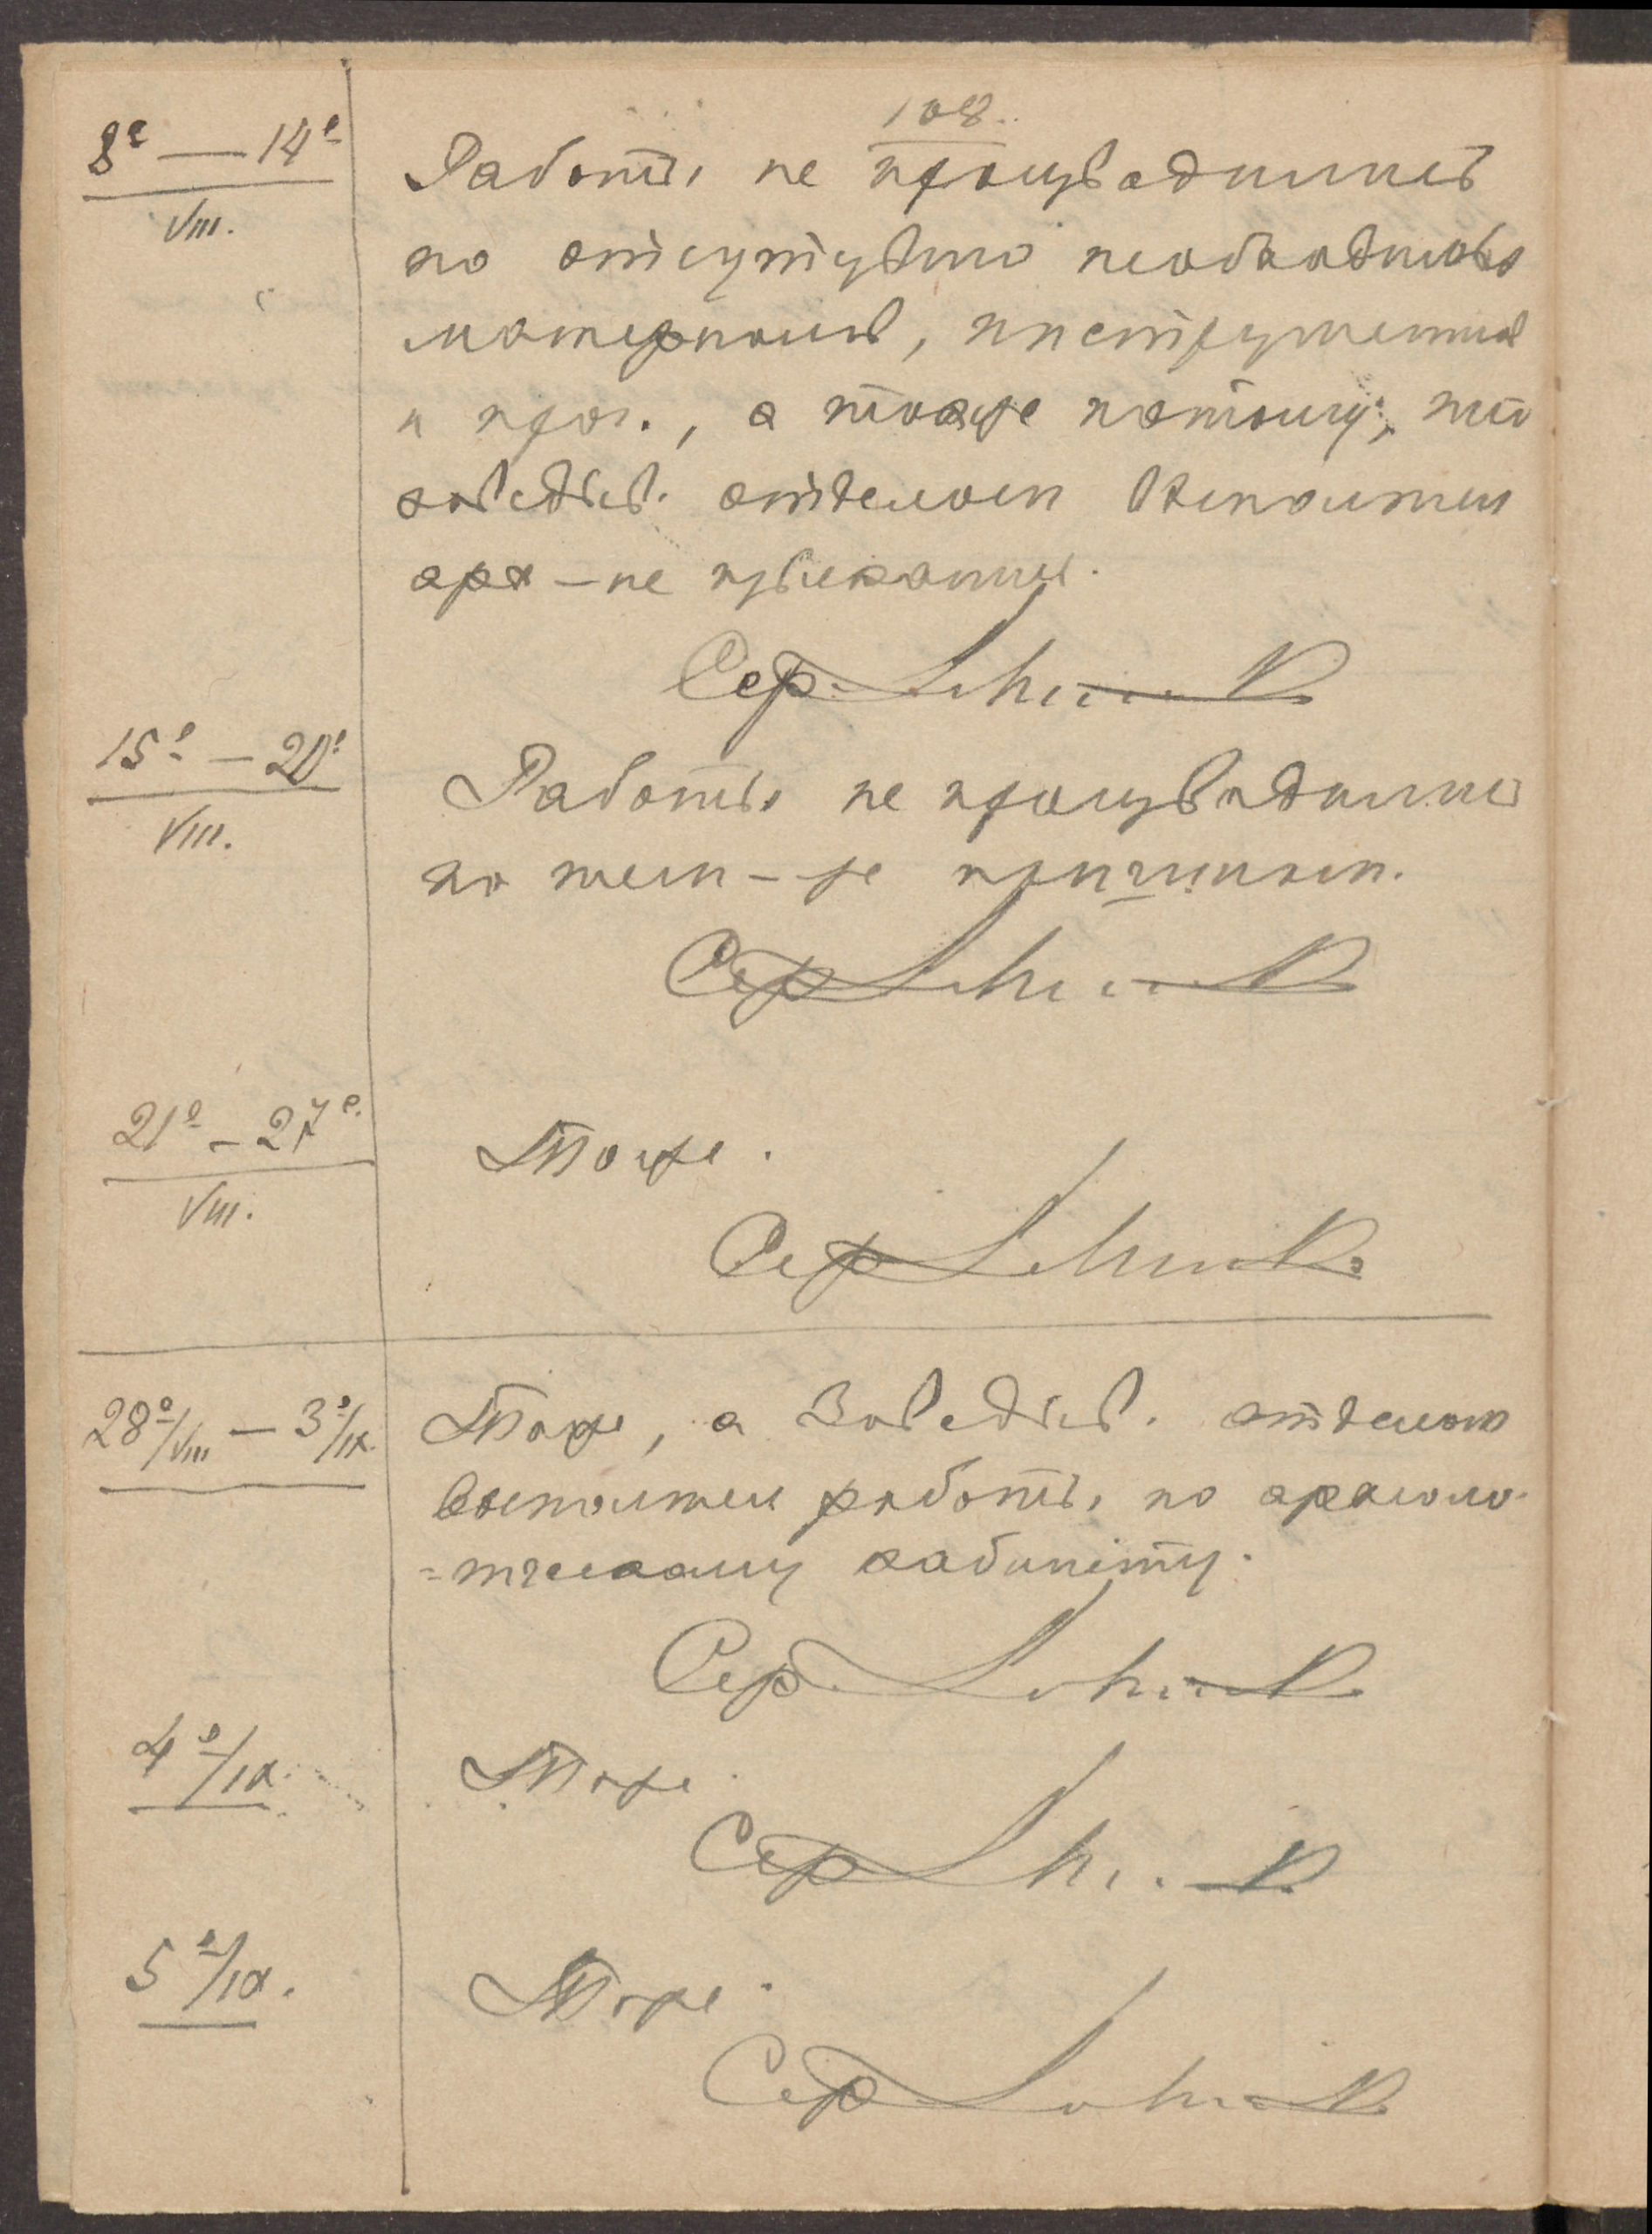 108.
8е — 14е
VIII.
Работы не производились
по отсутствию необходимых
материалов, инструментов
и проч., а также потому, что
заведыв. отделом
арх —не
Сер.
15е — 20е
VIII.
Работы не производились
по тем — же причинам.
Сер
21е — 27е.
VIII.
Тоже.
Сер
28е/VIII — 3е/IX.
Тоже, а Заведыв. отделом
выполнял работы по археоло-
=гическому кабинету.
Сер.
4е/IX.
Тоже.
Сер
5е/IX.
Тоже.
Сер